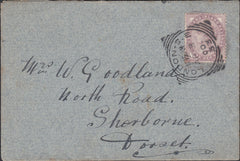 Mrs W. Goodland
North Road.
Sherborne.
Dorset.